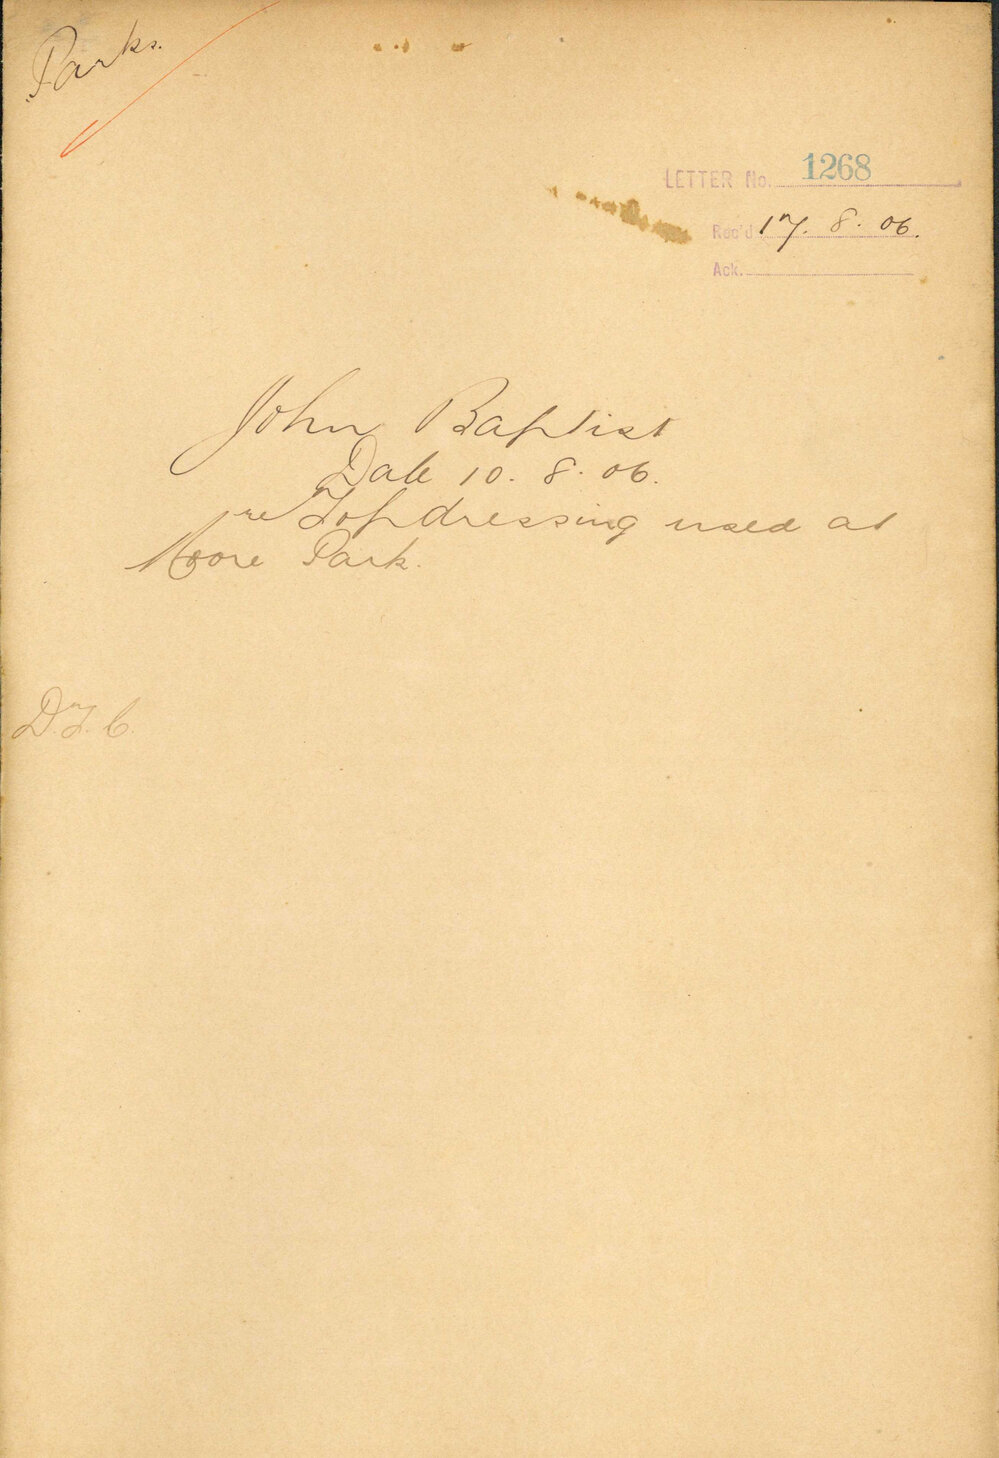 Parks.
LETTER No. 1268
Rec'd 17. 8. 06.
Ack.
John Baptist
Date 10. 8. 06.
re Topdressing used at
Moore Park.
D.T.C.